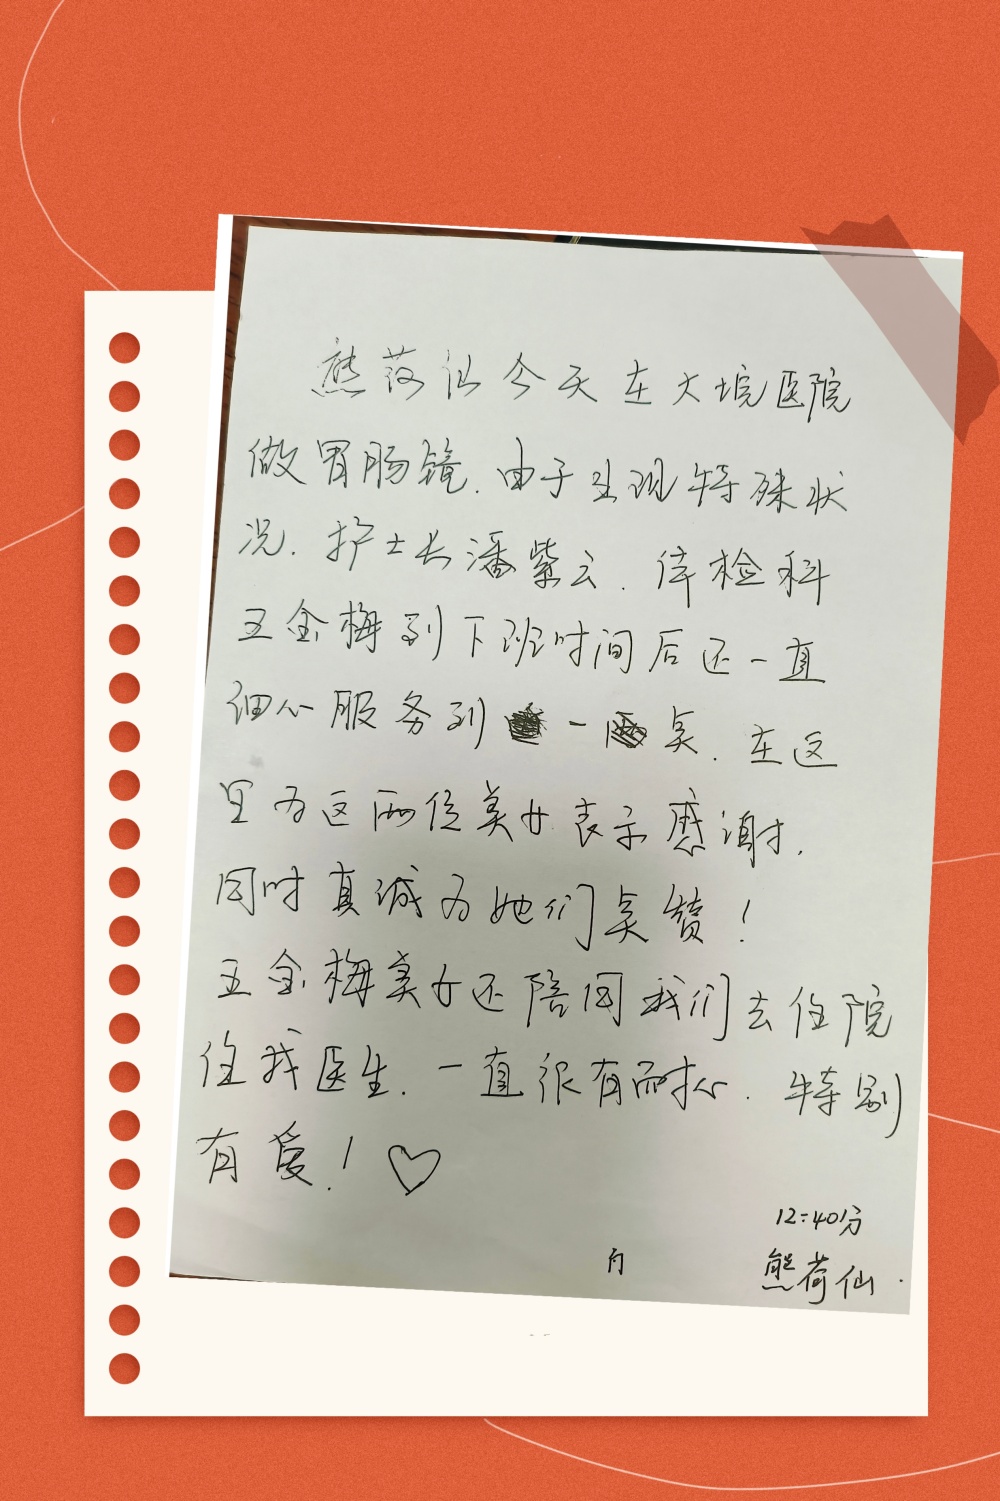 熊荷仙今天在大垸医院
做胃肠镜.由于出现特殊状
况.护士长潘紫云.体检科
王金梅到下班时间后还一直
细心服务到一点.在这
里为这两位美女表示感谢.
同时真诚为她们点赞!
王金梅美女还陪同我们去住院
住找医生.一直很有耐心.特别
有爱!♡
12:40分
熊荷仙.